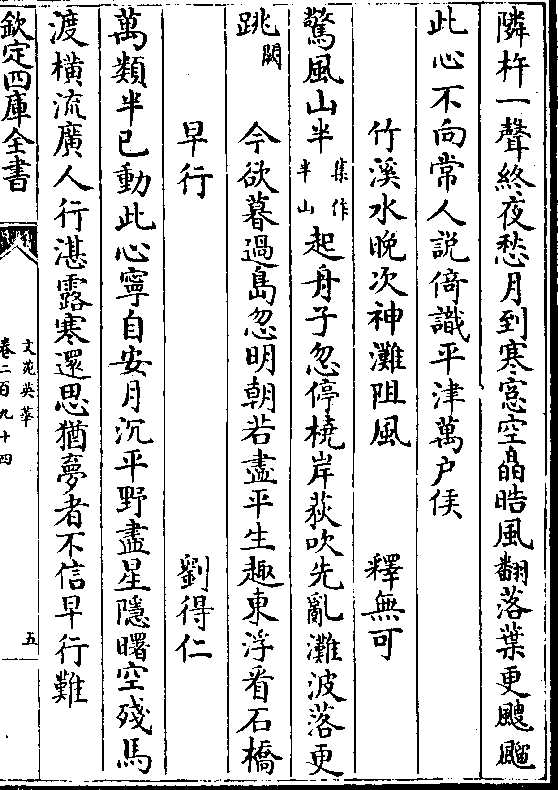 隣杵一聲終夜愁月到寒窓空皛晧風翻落葉更颼飀
此心不向常人説倚識平津萬户侯
竹溪水晚次神灘阻風 釋無可
驚風山半集作半山起舟子忽停橈岸荻吹先亂灘波落更
跳闕 今欲暮過島忽明朝若盡平生趣東浮看石橋
早行 劉得仁
萬類半已動此心寧自安月沉平野盡星隱曙空殘馬
渡横流廣人行湛露寒還思猶夢者不信早行難
欽定四庫全書 文苑英華 卷二百九十四 五